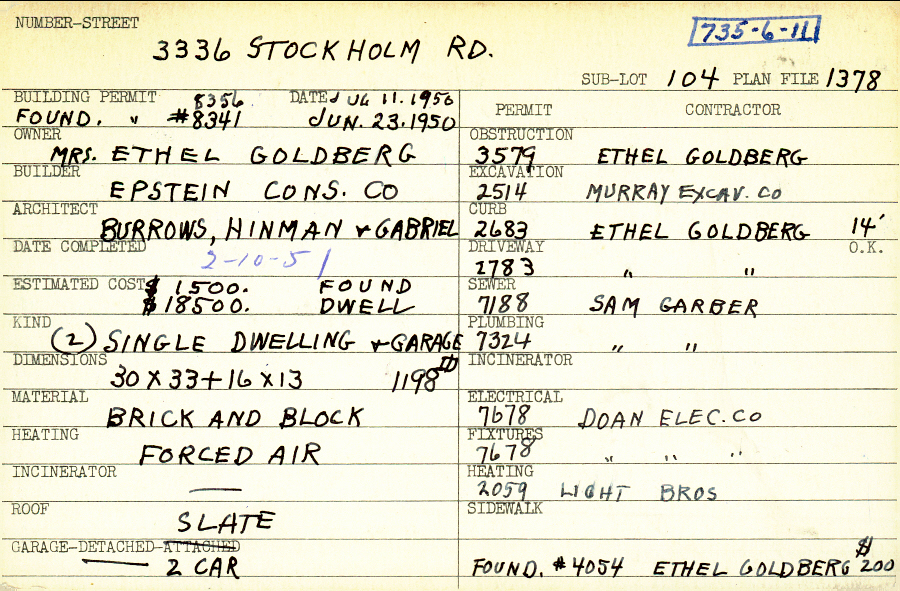 NUMBER-STREET
3336 STOCKHOLM RD.
735-6-11
SUB-LOT 104 PLAN FILE 1378
BUILDING PERMIT 8356 DATE AUG 11.1950
FOUND. " #8341 JUN. 23.1950
OWNER
MRS. ETHEL GOLDBERG
BUILDER
EPSTEIN CONS. CO
ARCHITECT
BURROWS, HINMAN & GABRIEL
DATE COMPLETED
2-10-51
ESTIMATED COST $ 1500. FOUND
$ 18500. DWELL
KIND
(2) SINGLE DWELLING & GARAGE
DIMENSIONS
30 X 33 + 16 X 13 1198
MATERIAL
BRICK AND BLOCK
HEATING
FORCED AIR
INCINERATOR
—
ROOF
SLATE
GARAGE-DETACHED-ATTACHED
2 CAR
PERMIT CONTRACTOR
OBSTRUCTION
3579 ETHEL GOLDBERG
EXCAVATION
2514 MURRAY EXCAV. CO
CURB
2683 ETHEL GOLDBERG 14'
DRIVEWAY O.K.
2783 " "
SEWER
7188 SAM GARBER
PLUMBING
7324 " "
INCINERATOR
ELECTRICAL
7678 DOAN ELEC. CO
FIXTURES
7678 " " "
HEATING
2059 LIGHT BROS
SIDEWALK
FOUND. #4054 ETHEL GOLDBERG $200